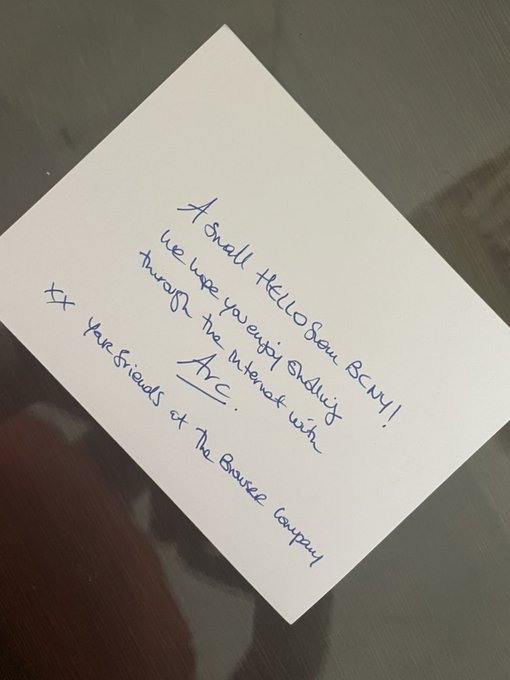 A small HELLO from BCNY!
We hope you enjoy
through the internet with
Arc.
xx your friends at The Browser Company